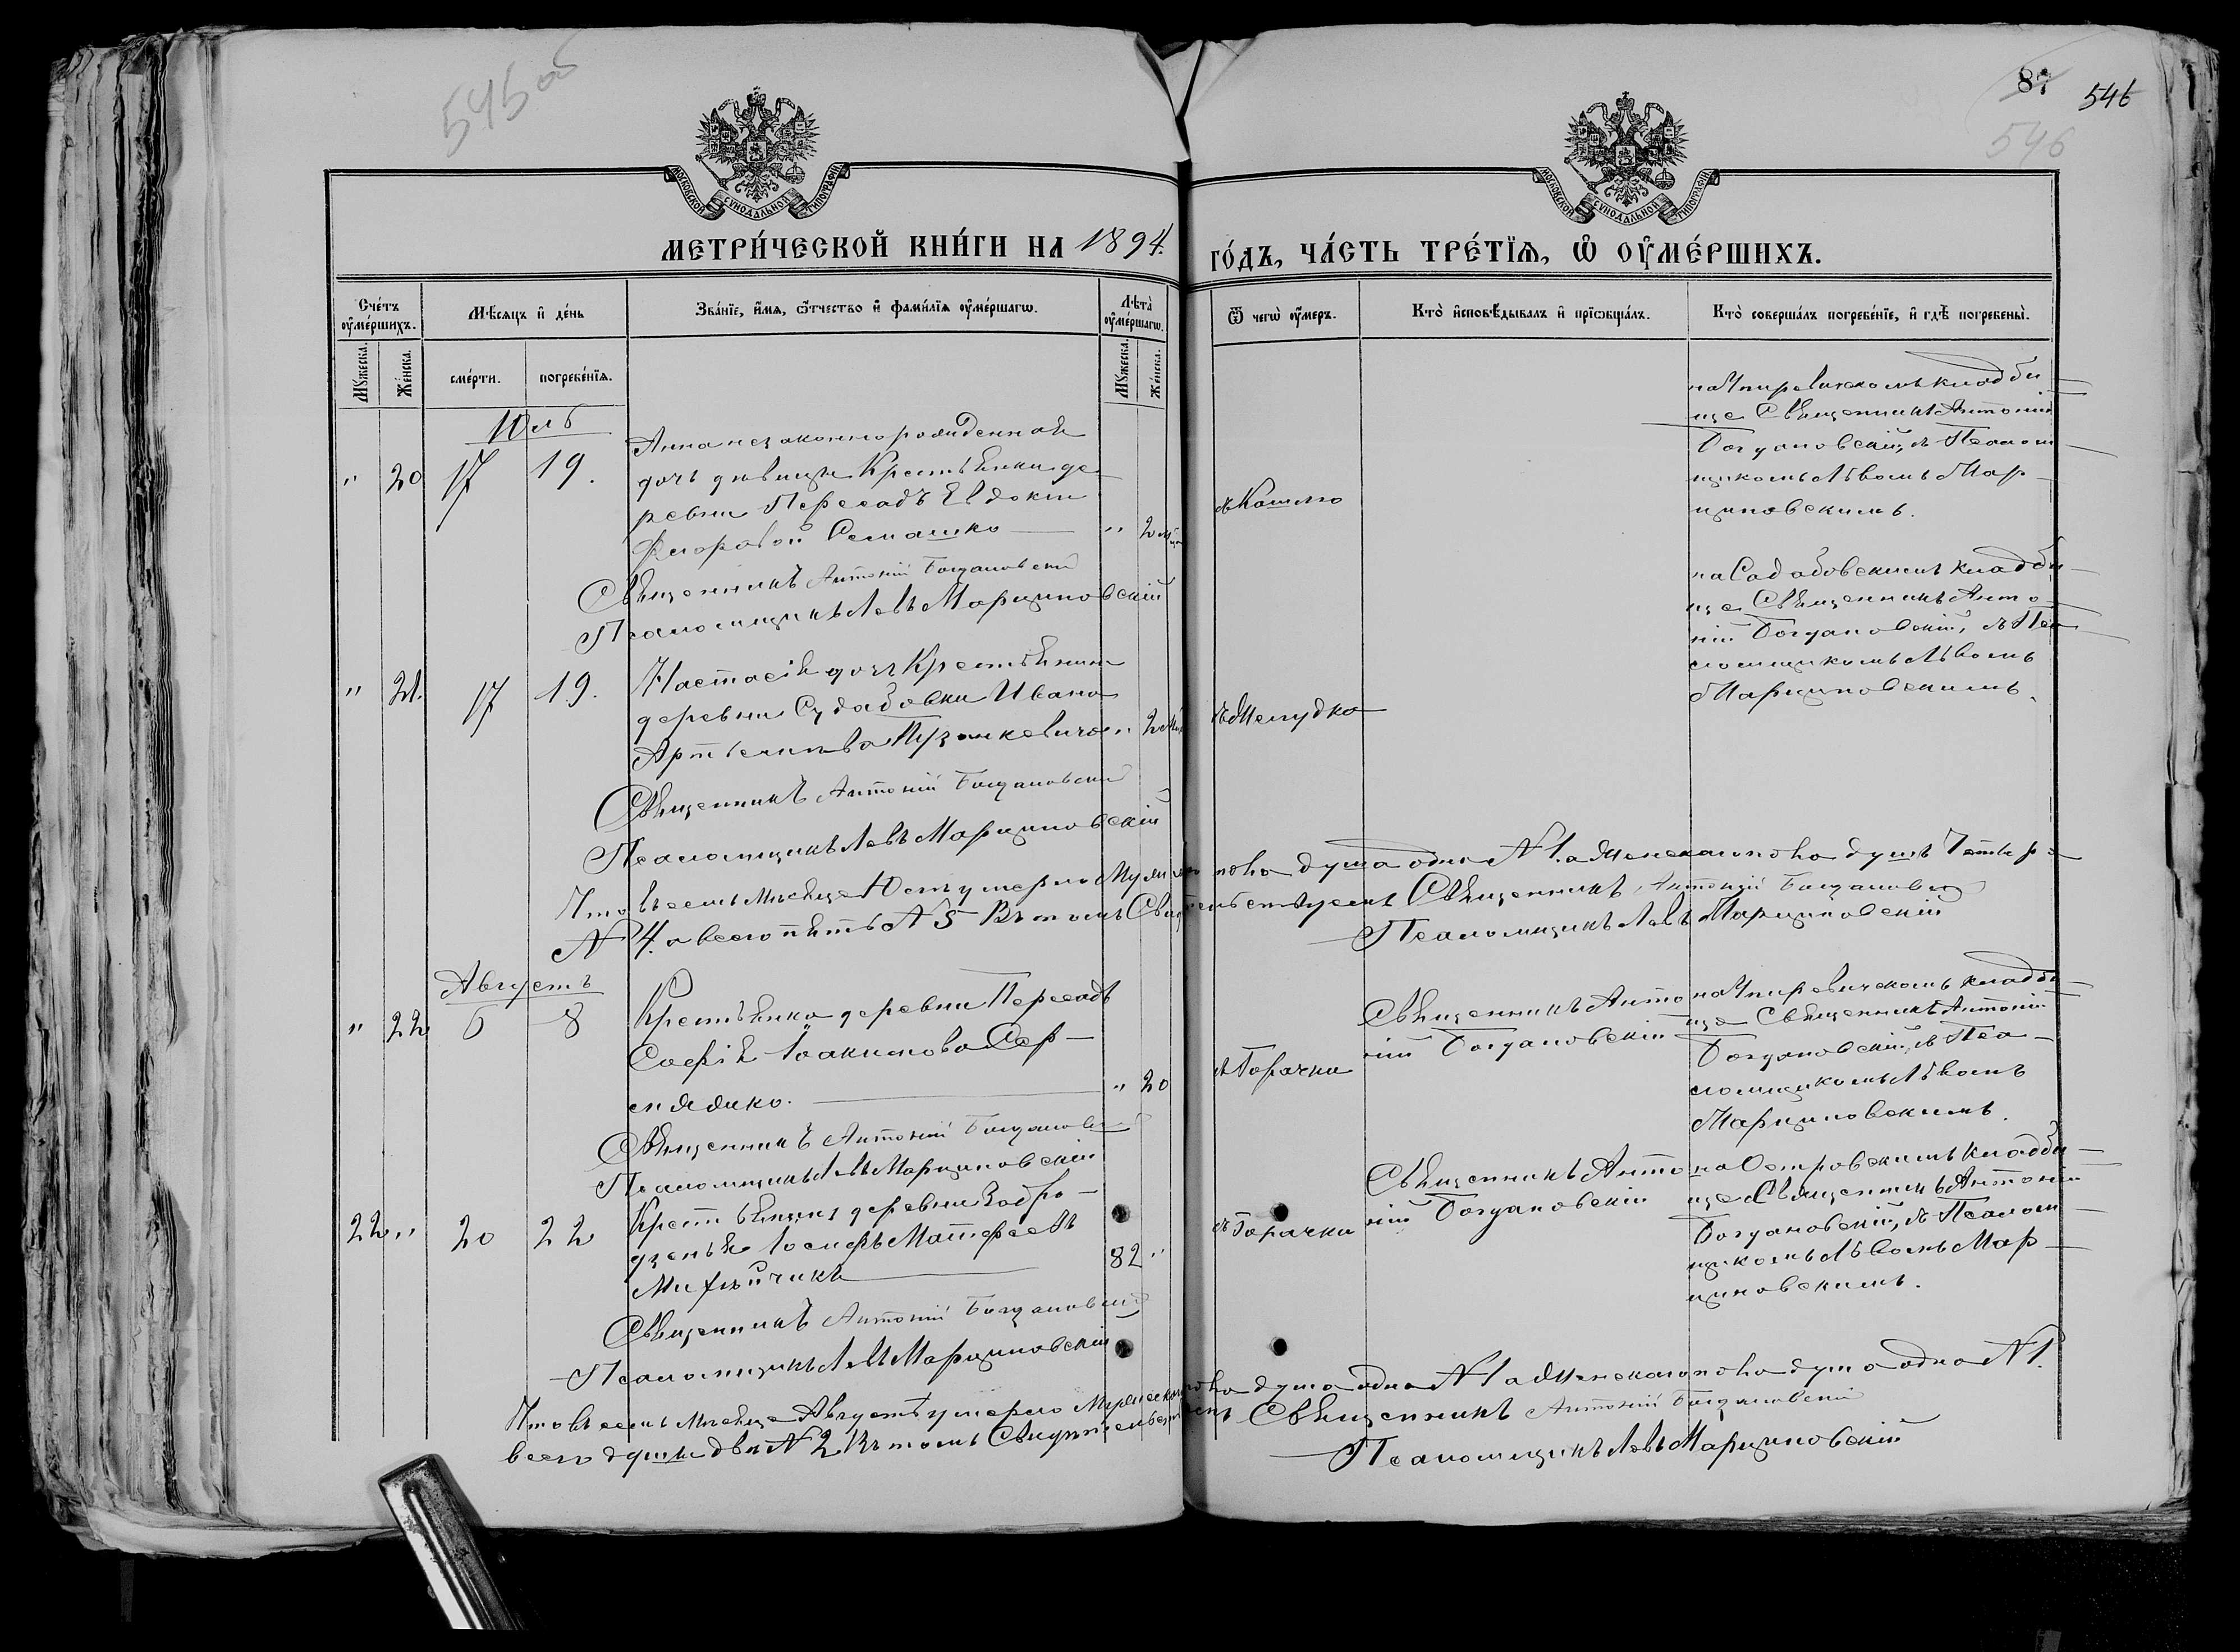 545 об
87 546
546
МОСКОВСКОЙ СѴНОДАЛЬНОЙ ТИПОГРАФІИ
МОСКОВСКОЙ СѴНОДАЛЬНОЙ ТИПОГРАФІИ
МЕТРИ́ЧЕСКОЙ КНИ́ГИ НА 1894. ГО́ДЪ, ЧА́СТЬ ТРЕ́ТІѦ, Ѡ ОУМЕ́РШИХЪ.
Сче́тъ оуме́ршихъ.
Мѣ́сяцъ и де́нь
Зва́нїе, и́мя, ѻ́тчество и фами́лїя оуме́ршагѡ.
Лѣ́та оуме́ршагѡ.
Ѿ чегѡ̀ оу́меръ.
Кто̀ исповѣ́дывалъ и прїѡбща́лъ.
Кто̀ соверша́лъ погребе́нїе, и гдѣ̀ погребены̀.
Му́жеска. Же́нска.
сме́рти. погребе́нїя.
Му́жеска. Же́нска.
Юль
" 20 17 19.
Анна незаконнорожденная
дочь дѣвицы Крестьянки де-
ревни Пересадъ Евдокіи
Флоровой Семашко " 2 мѣс
Священникъ Антоній Богдановскій
Псаломщикъ Левъ Марциновскій
съ Кашлю
на кладби-
ще Священникъ Антоній
Богдановскій, съ Псалом-
щикомъ Львомъ Мар-
циновскимъ.
" 21. 17 19.
Настасія дочь Крестьянина
деревни Судабовки Ивана
" 2 мѣс
Священникъ Антоній Богдановскій
Псаломщикъ Левъ Марциновскій
съ Желудка
на Садабовскимъ кладби-
ще Священникъ Анто-
ній Богдановскій, съ Пса-
ломщикомъ Львомъ
Марциновскимъ.
Что въ семъ Мѣсяце Юлѣ умерло Мужеска пола душа одна N 1. а Женскаго пола душъ Четыре
N 4. а всего пять N 5 Въ томъ Свидѣтельствуемъ Священникъ Антоній Богдановскій
Псаломщикъ Левъ Марциновскій
Августъ
" 22 6 8
Крестьянка деревни Пересадъ
Софія Іоакимова Сер-
" 20
Священникъ Антоній Богдановскій
Псаломщикъ Левъ Марциновскій
съ Горачки
Священникъ Анто-
ній Богдановскій
на кладби-
ще Священникъ Антоній
Богдановскій, съ Пса-
ломщикомъ Львомъ
Марциновскимъ.
22 " 20 22
Крестьянинъ деревни Забро-
дзенья Іосифъ Матфеевъ
82 "
Священникъ Антоній Богдановскій
Псаломщикъ Левъ Марциновскій
съ Горачки
Священникъ Анто-
ній Богдановскій
на Островскимъ кладби-
ще Священникъ Антоній
Богдановскій, съ Псалом-
щикомъ Львомъ Мар-
циновскимъ.
Что въ семъ Мѣсяце Августѣ умерло Мужеска пола душа одна N 1 а Женскаго пола душа одна N 1.
всего души двѣ N 2 Въ томъ Свидѣтельствуемъ Священникъ Антоній Богдановскій
Псаломщикъ Левъ Марциновскій